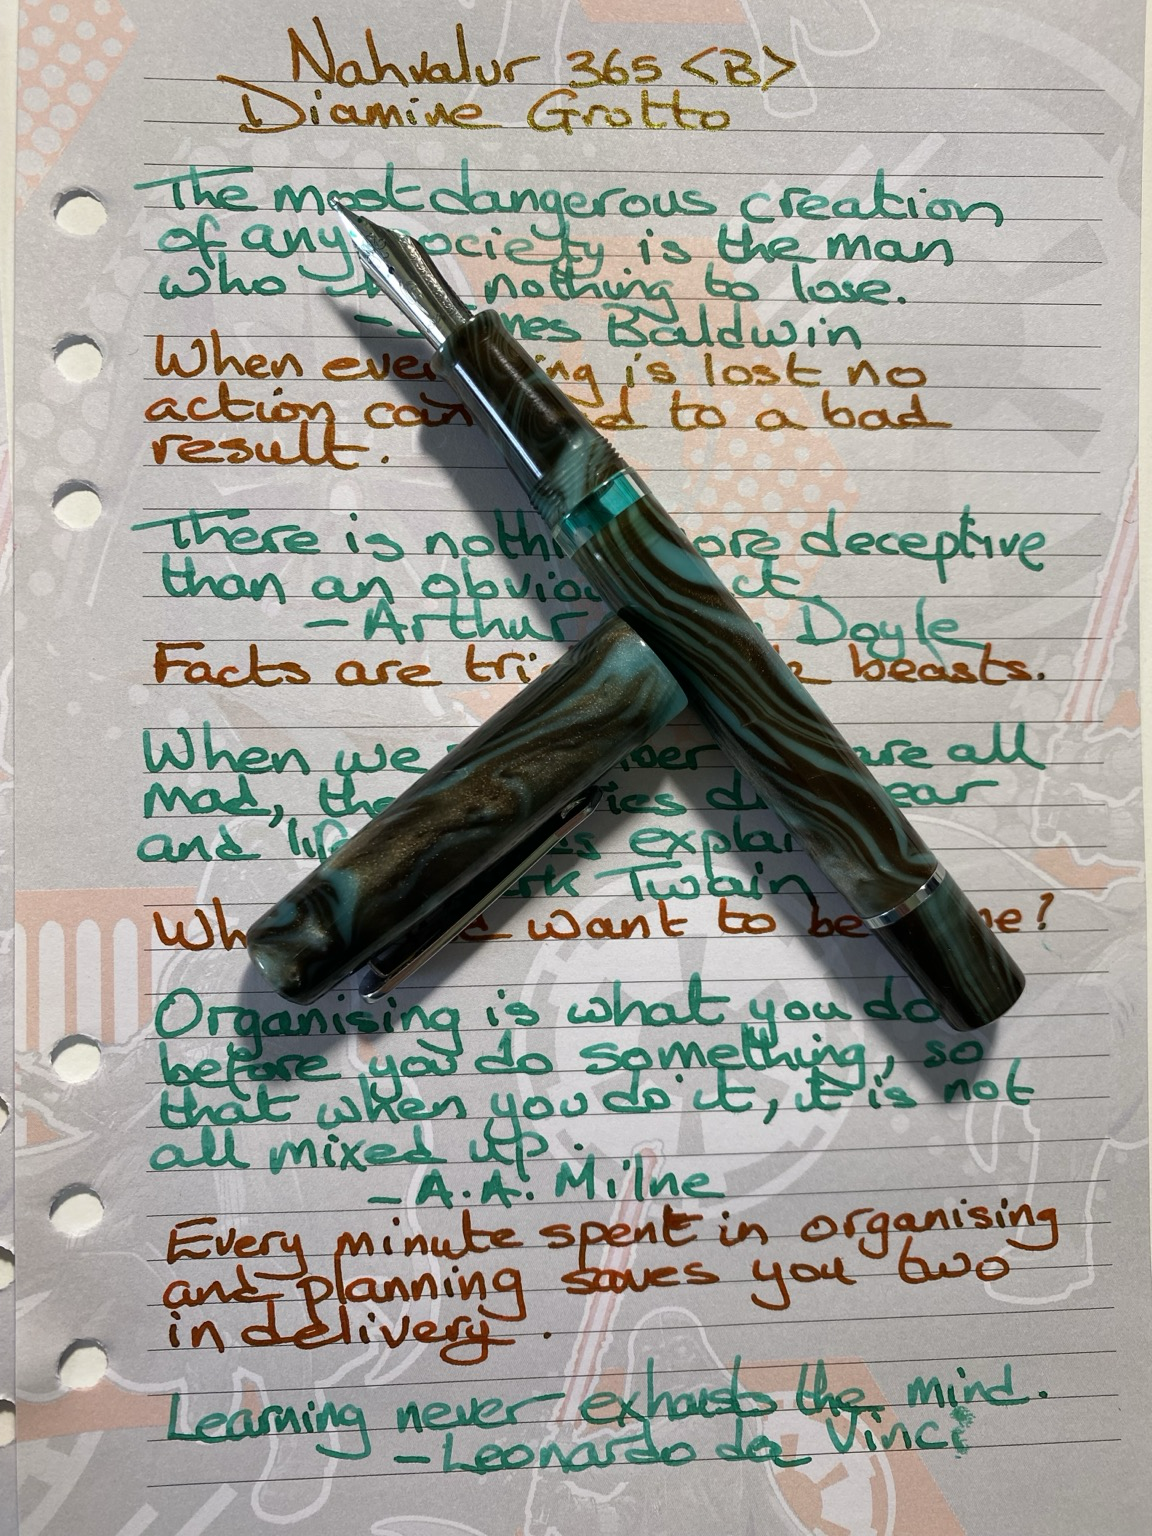 Nahvalur 365 <B>
Diamine Grotto
The most dangerous creation
of any society is the man
who nothing to lose.
- James Baldwin
When everything is lost no
action can lead to a bad
result.
There is nothing more deceptive
than an obvious fact.
- Arthur Doyle
Facts are beasts.
When we remember are all
mad, the mysteries disappear
and life explained
Mark Twain
want to be
Organising is what you do
before you do something, so
that when you do it, it is not
all mixed up.
- A.A. Milne
Every minute spent in organising
and planning saves you two
in delivery.
Learning never exhausts the mind.
- Leonardo da Vinci